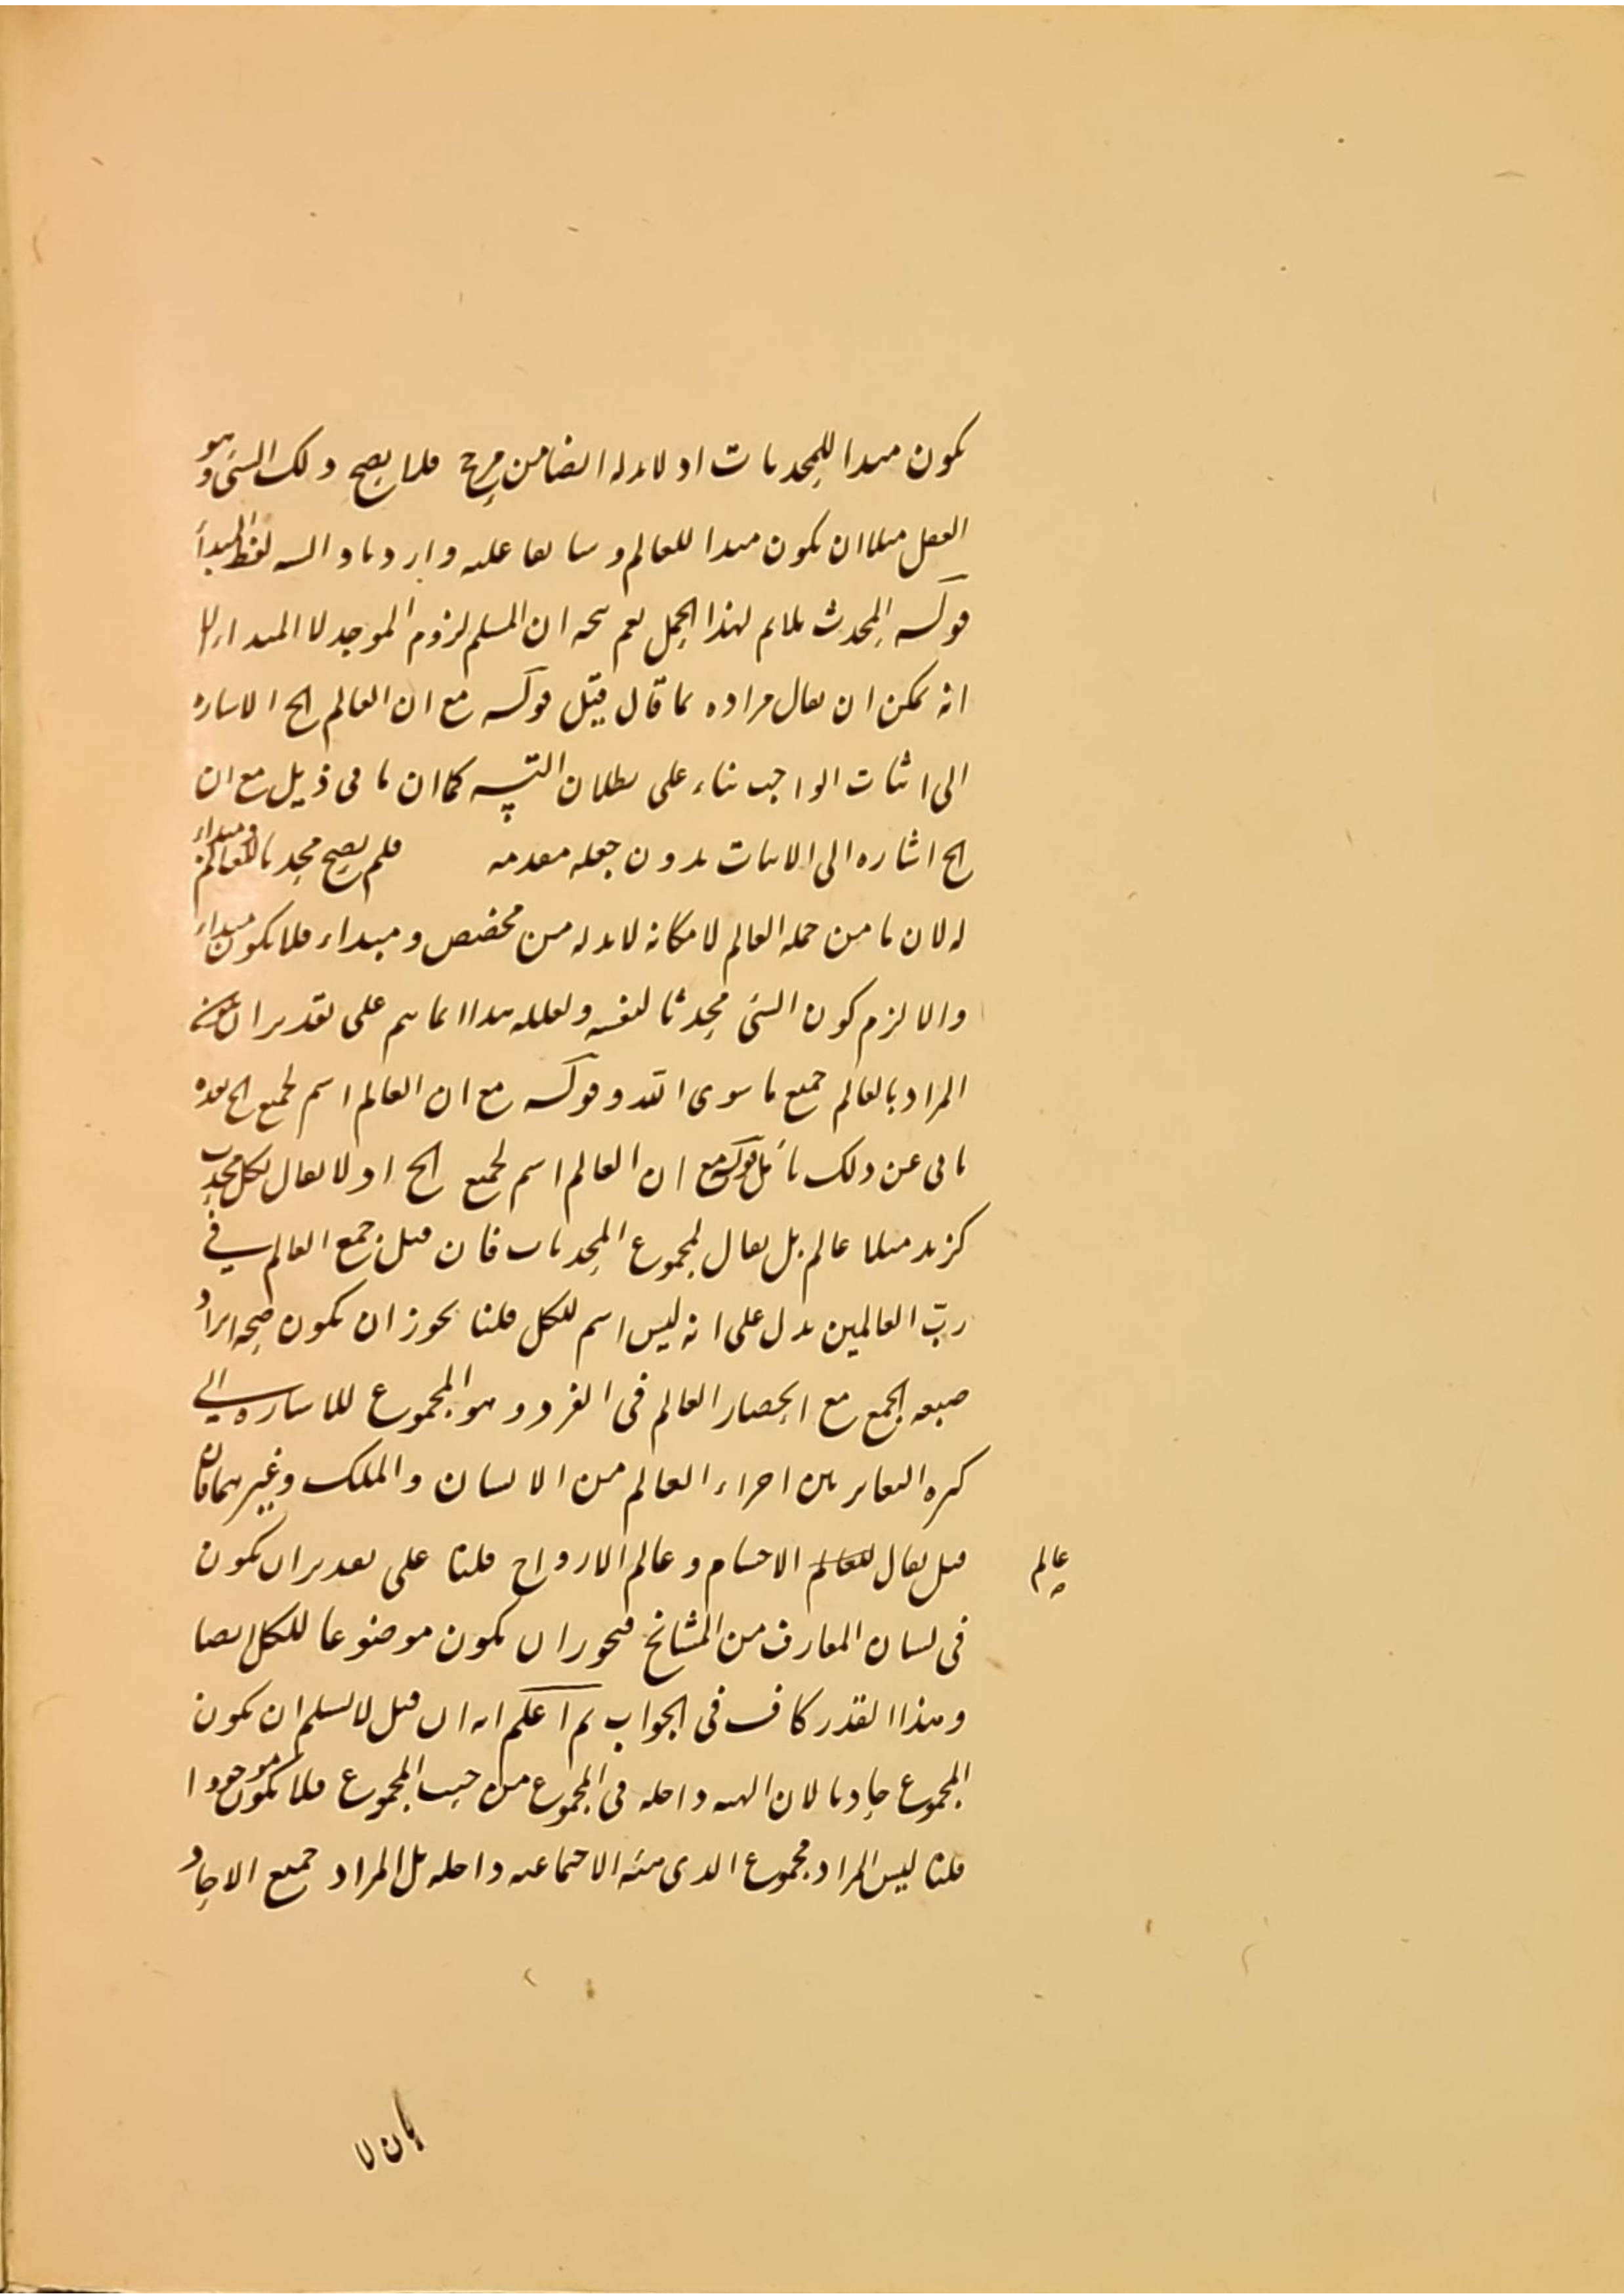 يكون مبدا للمحدثات اذ لابد له ايضا من مرجح فلا يصح ذلك الشئ وهو
العقل مثلا ان يكون مبدا للعالم وسابقا عليه وايراد لفظ المبدأ
قوله المحدث ملايم لهذا الحمل نعم يتجه ان المسلم لزوم الموجد لا المبداء
انه يمكن ان يقال مراده بما قال قبيل قوله مع ان العالم الخ الاشاره
الى اثبات الواجب بناء على بطلان التس كما ان ما فى ذيل مع ان
الخ اشاره الى الاثبات بدون جعله مقدمه فلم يصح محدثا للعالم ومبداء
له لان ما من جمله العالم لامكانه لابد له من مخصص ومبداء فلا يكون مبداء
والا لزم كون الشئ محدثا لنفسه ولعلله هذا انما يتم على تقدير ان يكون
المراد بالعالم جميع ما سوى الله وقوله مع ان العالم اسم لجميع الخ بعده
يابى عن ذلك تأمل قوله مع ان العالم اسم لجميع الخ اذ لا يقال لكل محدث
كزيد مثلا عالم بل يقال لمجموع المحدثات فان قيل جمع العالم في
ربّ العالمين يدل على انه ليس اسم للكل قلنا يجوز ان يكون صحه ايراد
صيغه الجمع مع انحصار العالم فى الفرد وهو المجموع للاشاره الي
كثره التغاير بين اجزاء العالم من الانسان والملك وغيرهما فان
قيل يقال للعالم الاجسام وعالم الارواح قلنا على تقدير ان يكون
عالم صح
فى لسان المعارف من المشائخ فيجوز ان يكون موضوعا للكل ايضا
وهذا القدر كاف فى الجواب ثم اعلم انه ان قيل لا نسلم ان يكون
المجموع حادثا لان الهيئه داخله فى المجموع من حيث المجموع فلا يكون موجودا
قلنا ليس المراد مجموع الذى هيئه الاجتماعيه داخله بل المراد جميع الاحاد
بان لا